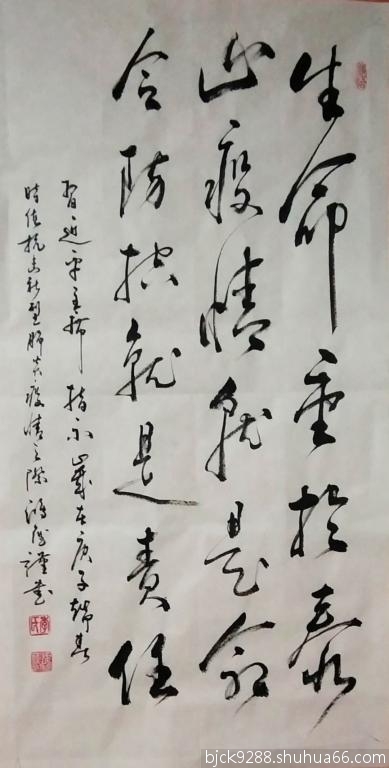 生命重於泰
山疫情就是命
令防控就是责任
习近平主席指示岁在庚子端月
时值抗击新型肺炎疫情之际 谨书
bjck9288.shuhua66.com